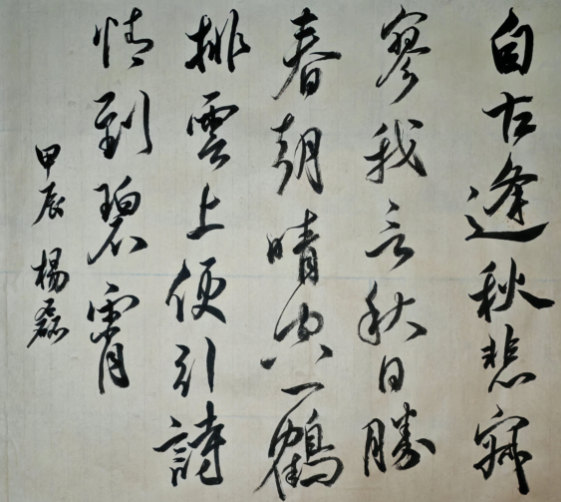 自古逢秋悲寂
寥我言秋日勝
春朝晴空一鶴
排雲上便引詩
情到碧霄
甲辰 楊磊